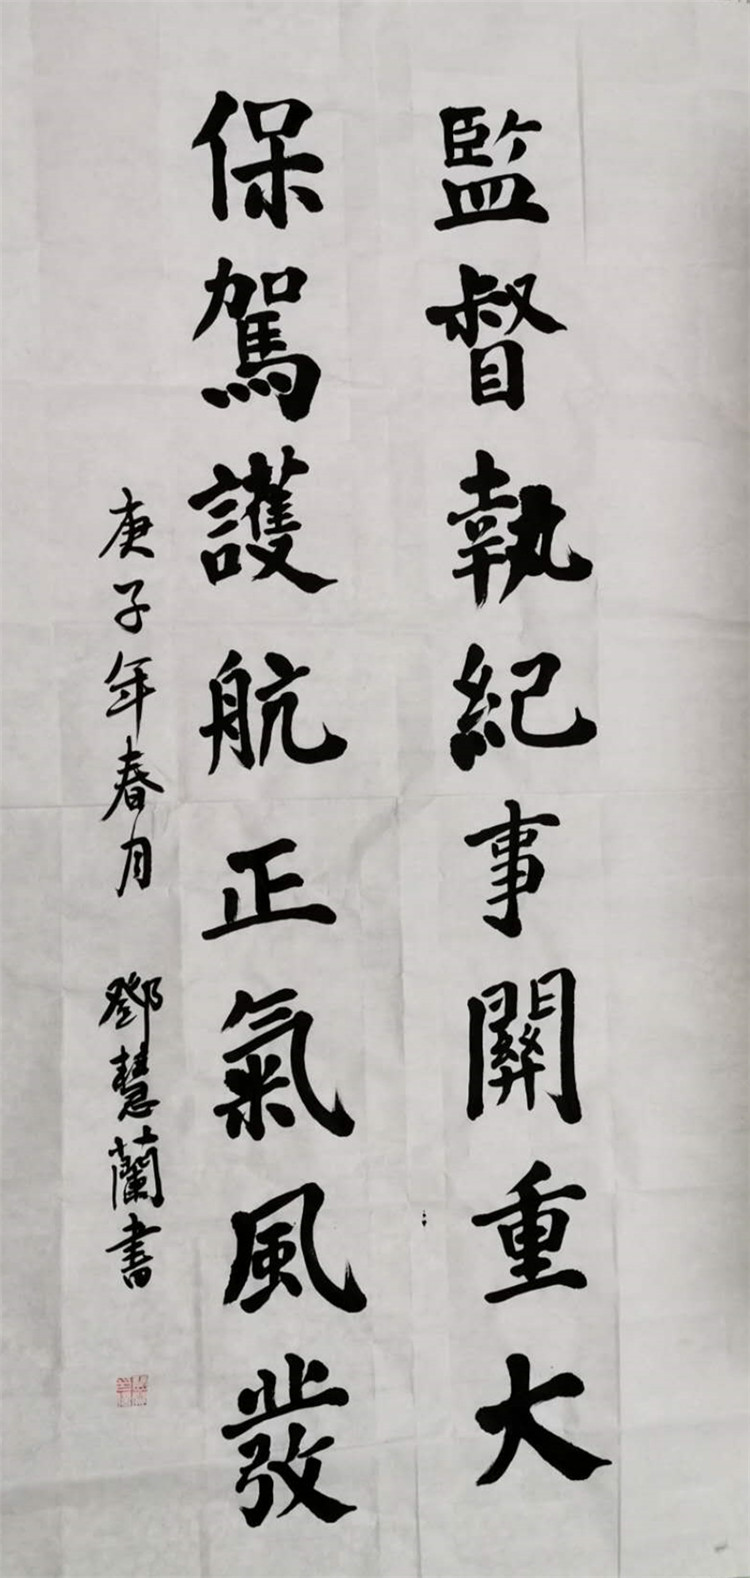 監督執紀事關重大
保駕護航正氣風發
庚子年春月 鄧慧蘭書